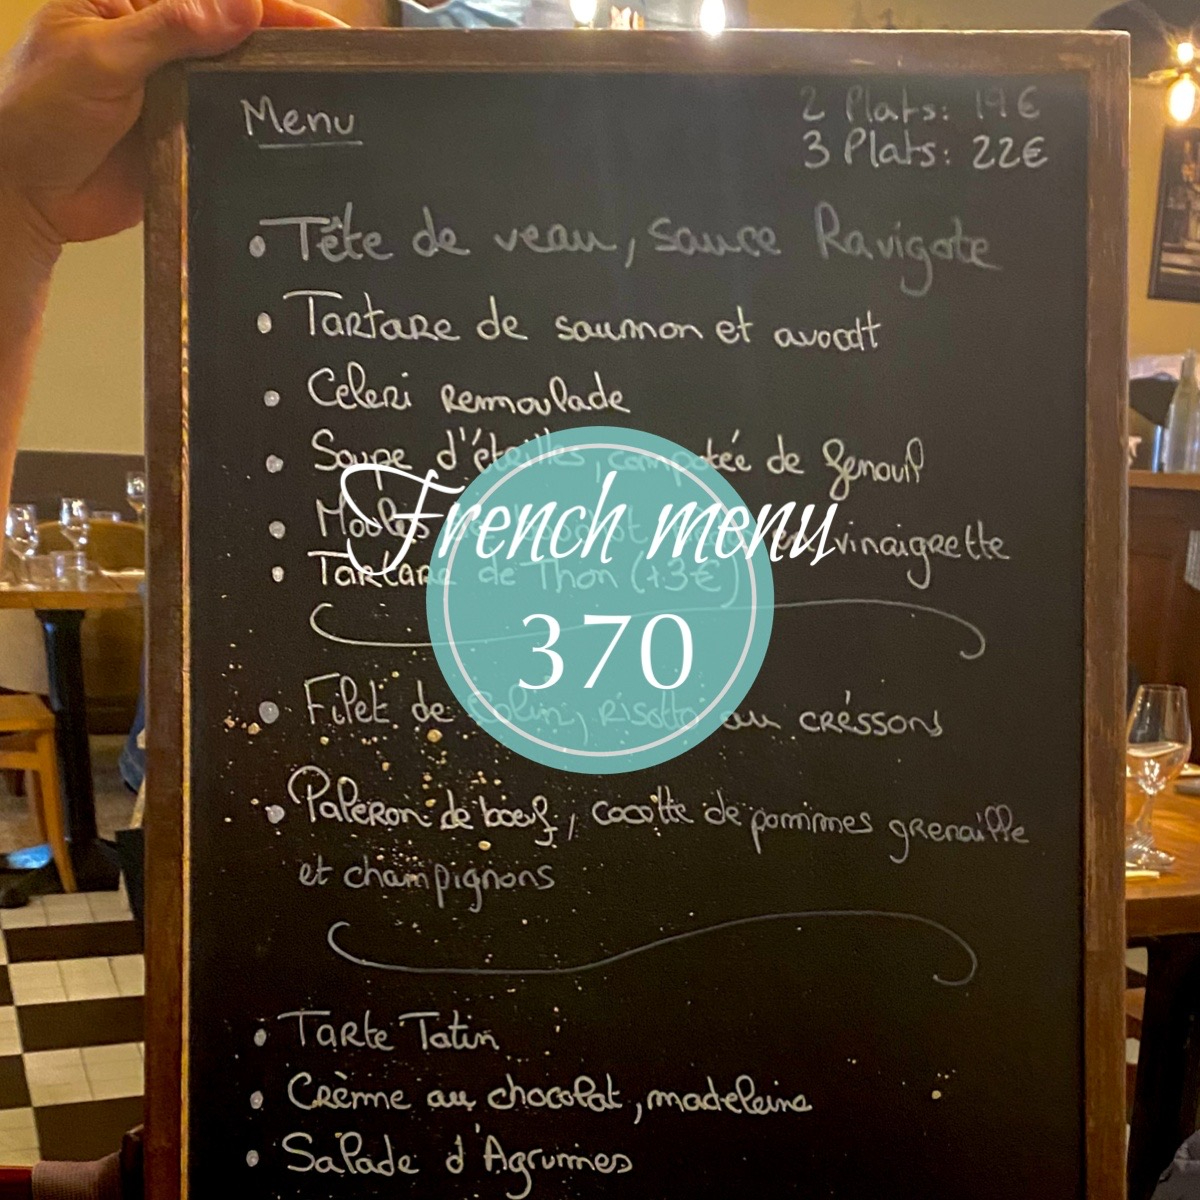 Menu
2 Plats: 19€
3 Plats: 22€
Tête de veau, sauce Ravigote
Tartare de saumon et avocat
Céleri remoulade
Soupe d'éteilles, campotée de fenouil
Moules vinaigrette
Tartare de Thon (+3€)
French menu
370
Filet de Colin, risotto au créssons
Paleron de boeuf, cocotte de pommes grenaille
et champignons
Tarte Tatin
Crème au chocolat, madeleine
Salade d'Agrumes